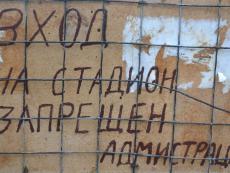 ВХОД
НА СТАДИОН
ЗАПРЕЩЕН
АДМИСТРАЦ